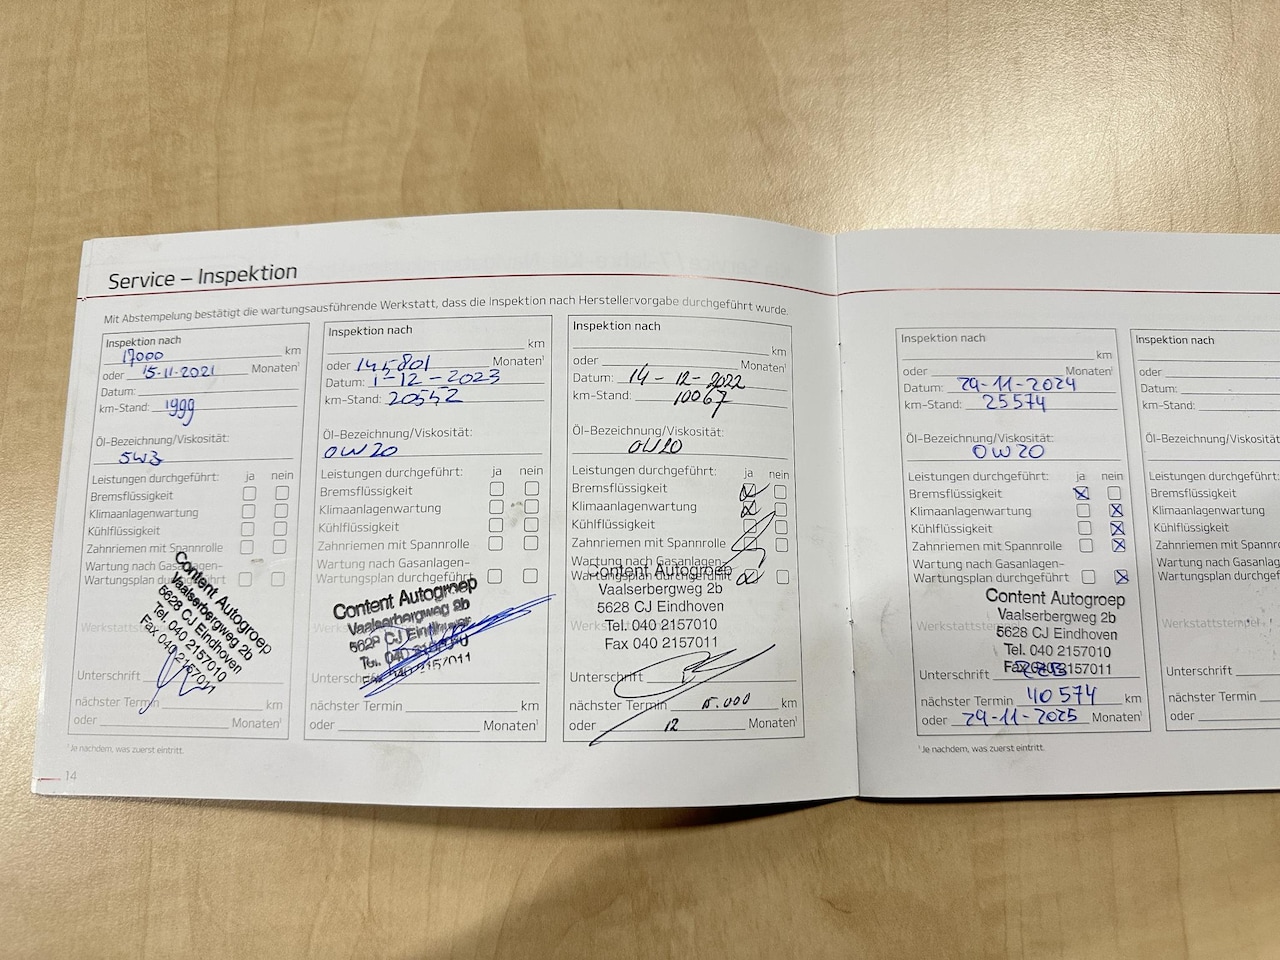 Service – Inspektion
Mit Abstempelung bestätigt die wartungsausführende Werkstatt, dass die Inspektion nach Herstellervorgabe durchgeführt wurde.
Inspektion nach
17000 km
oder 15-11-2021 Monaten¹
Datum:
km-Stand: 1999
Öl-Bezeichnung/Viskosität:
5W3
Leistungen durchgeführt: ja nein
Bremsflüssigkeit
Klimaanlagenwartung
Kühlflüssigkeit
Zahnriemen mit Spannrolle
Wartung nach Gasanlagen-
Wartungsplan durchgeführt
Content Autogroep
Vaalserbergweg 2b
5628 CJ Eindhoven
Tel. 040 2157010
Fax 040 2157011
Unterschrift
nächster Termin km
oder Monaten¹
Inspektion nach
km
oder 145801 Monaten¹
Datum: 1-12-2023
km-Stand: 20552
Öl-Bezeichnung/Viskosität:
0W20
Leistungen durchgeführt: ja nein
Bremsflüssigkeit
Klimaanlagenwartung
Kühlflüssigkeit
Zahnriemen mit Spannrolle
Wartung nach Gasanlagen-
Wartungsplan durchgeführt
Content Autogroep
Vaalserbergweg 2b
5628 CJ Eindhoven
Tel. 040 2157010
Fax 040 2157011
Unterschrift
nächster Termin km
oder Monaten¹
Inspektion nach
km
oder Monaten¹
Datum: 14-12-2022
km-Stand: 10067
Öl-Bezeichnung/Viskosität:
0W20
Leistungen durchgeführt: ja nein
Bremsflüssigkeit
Klimaanlagenwartung
Kühlflüssigkeit
Zahnriemen mit Spannrolle
Wartung nach Gasanlagen-
Wartungsplan durchgeführt
Content Autogroep
Vaalserbergweg 2b
5628 CJ Eindhoven
Tel. 040 2157010
Fax 040 2157011
Unterschrift
nächster Termin 15.000 km
oder 12 Monaten¹
¹Je nachdem, was zuerst eintritt.
14
Inspektion nach
km
oder Monaten¹
Datum: 29-11-2024
km-Stand: 25574
Öl-Bezeichnung/Viskosität:
0W20
Leistungen durchgeführt: ja nein
Bremsflüssigkeit
Klimaanlagenwartung
Kühlflüssigkeit
Zahnriemen mit Spannrolle
Wartung nach Gasanlagen-
Wartungsplan durchgeführt
Content Autogroep
Vaalserbergweg 2b
5628 CJ Eindhoven
Tel. 040 2157010
Fax 040 2157011
Unterschrift
nächster Termin 40574 km
oder 29-11-2025 Monaten¹
¹Je nachdem, was zuerst eintritt.
Inspektion nach
oder
Datum:
km-Stand:
Öl-Bezeichnung/Viskosität
Leistungen durchgeführt:
Bremsflüssigkeit
Klimaanlagenwartung
Kühlflüssigkeit
Zahnriemen mit Spannrolle
Wartung nach Gasanlagen-
Wartungsplan durchgeführt
Unterschrift
nächster Termin
oder